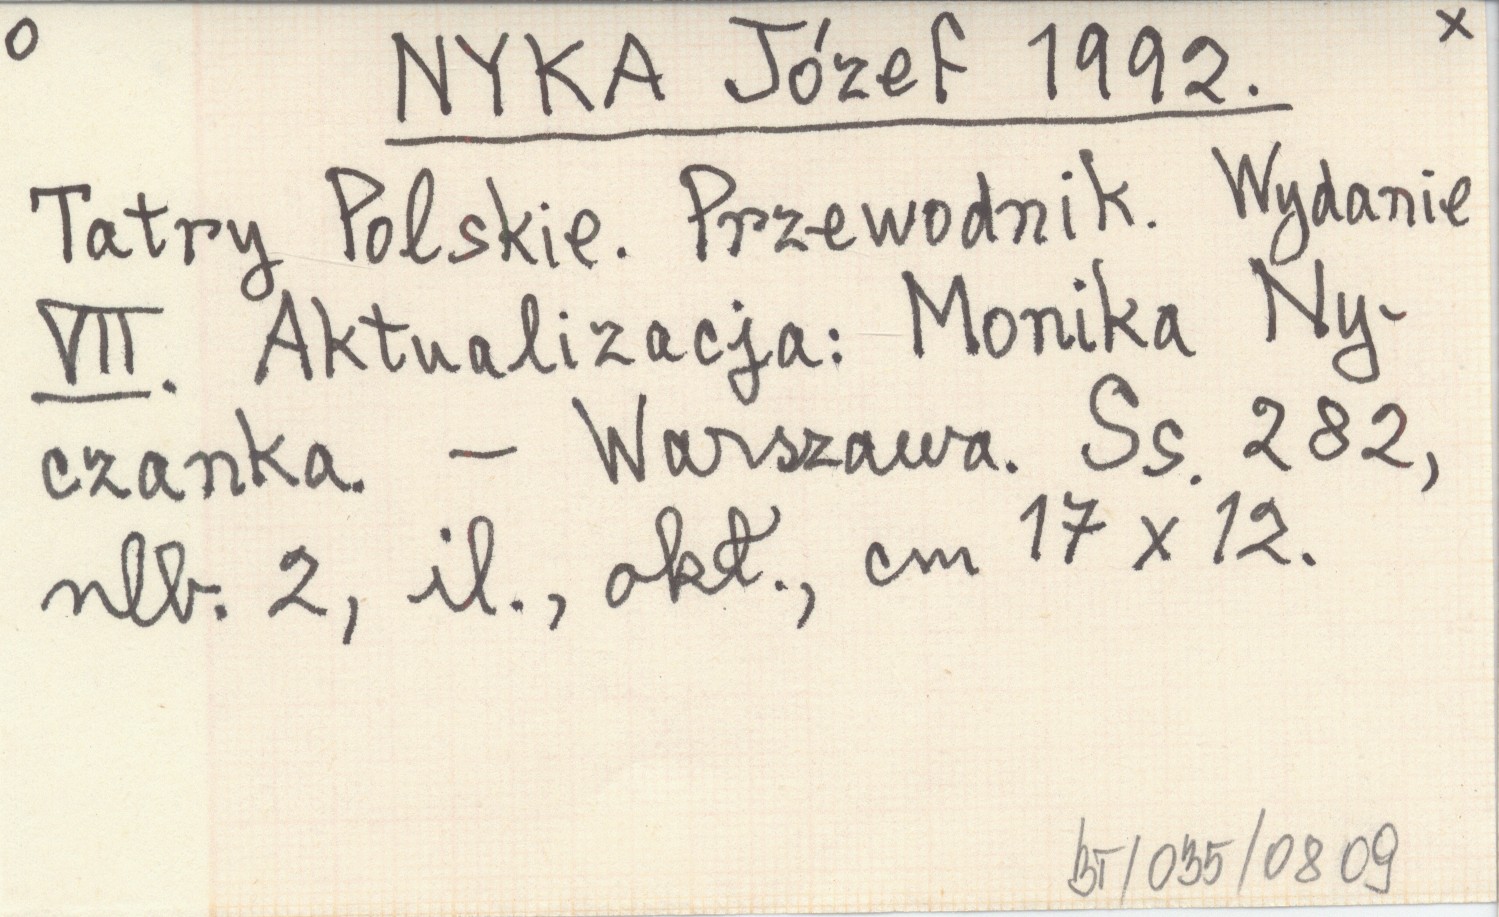 o NYKA Józef 1992. x
Tatry Polskie. Przewodnik. Wydanie
VII. Aktualizacja: Monika Ny-
czanka. – Warszawa. Ss. 282,
nlb. 2, il., okł., cm 17 x 12.
BT/035/0809